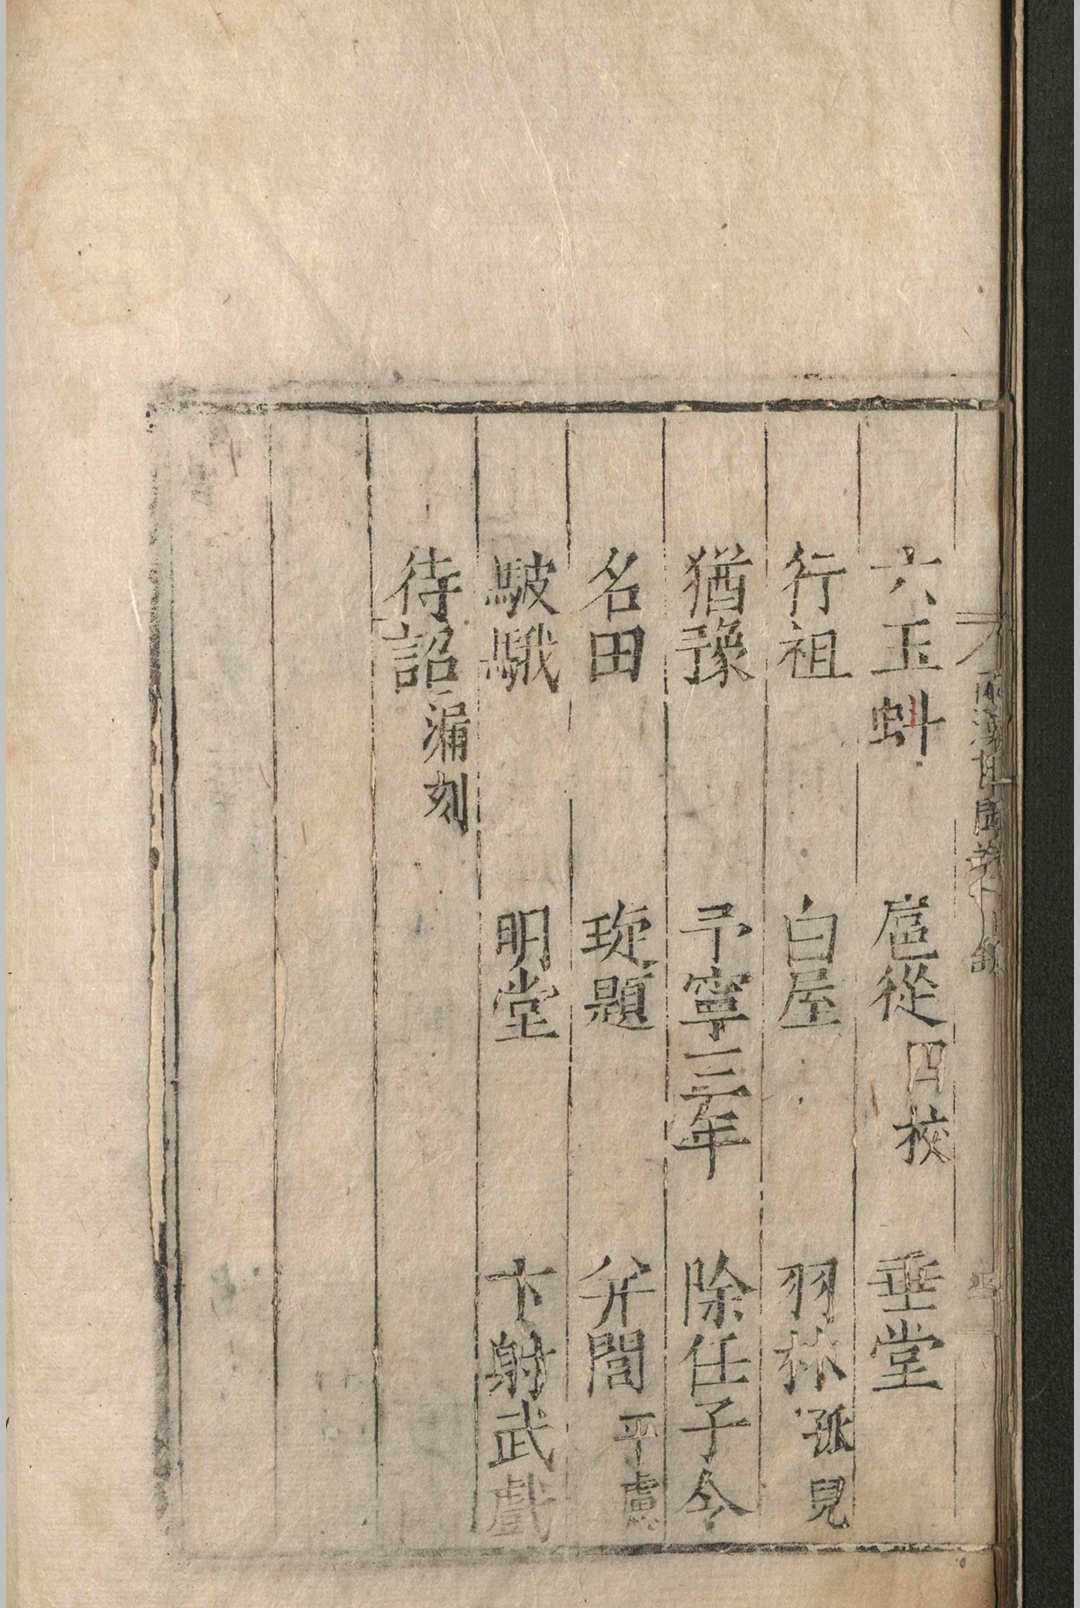 六玉蚪　扈從四校　垂堂
行祖　白屋　羽林孤兒
猶豫　予寧三年　除任子令
名田　琁題　弁閭平慮
駊騀　明堂　卞射武戲
待詔漏刻